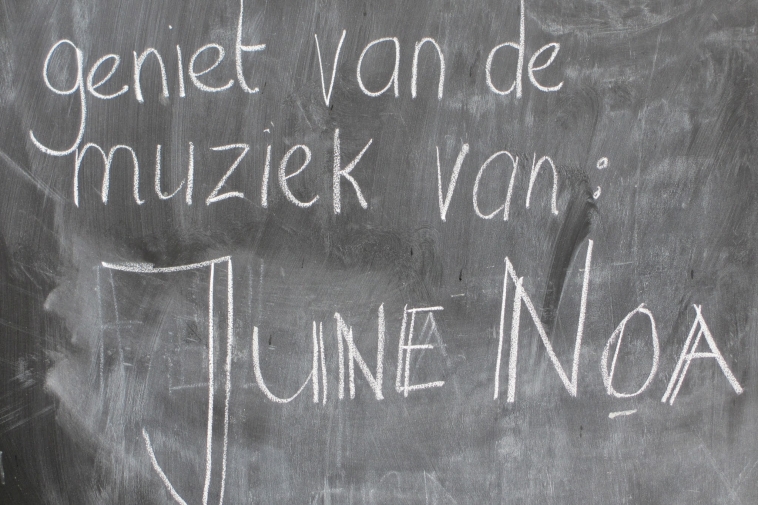 geniet van de
muziek van:
JUNE NOA